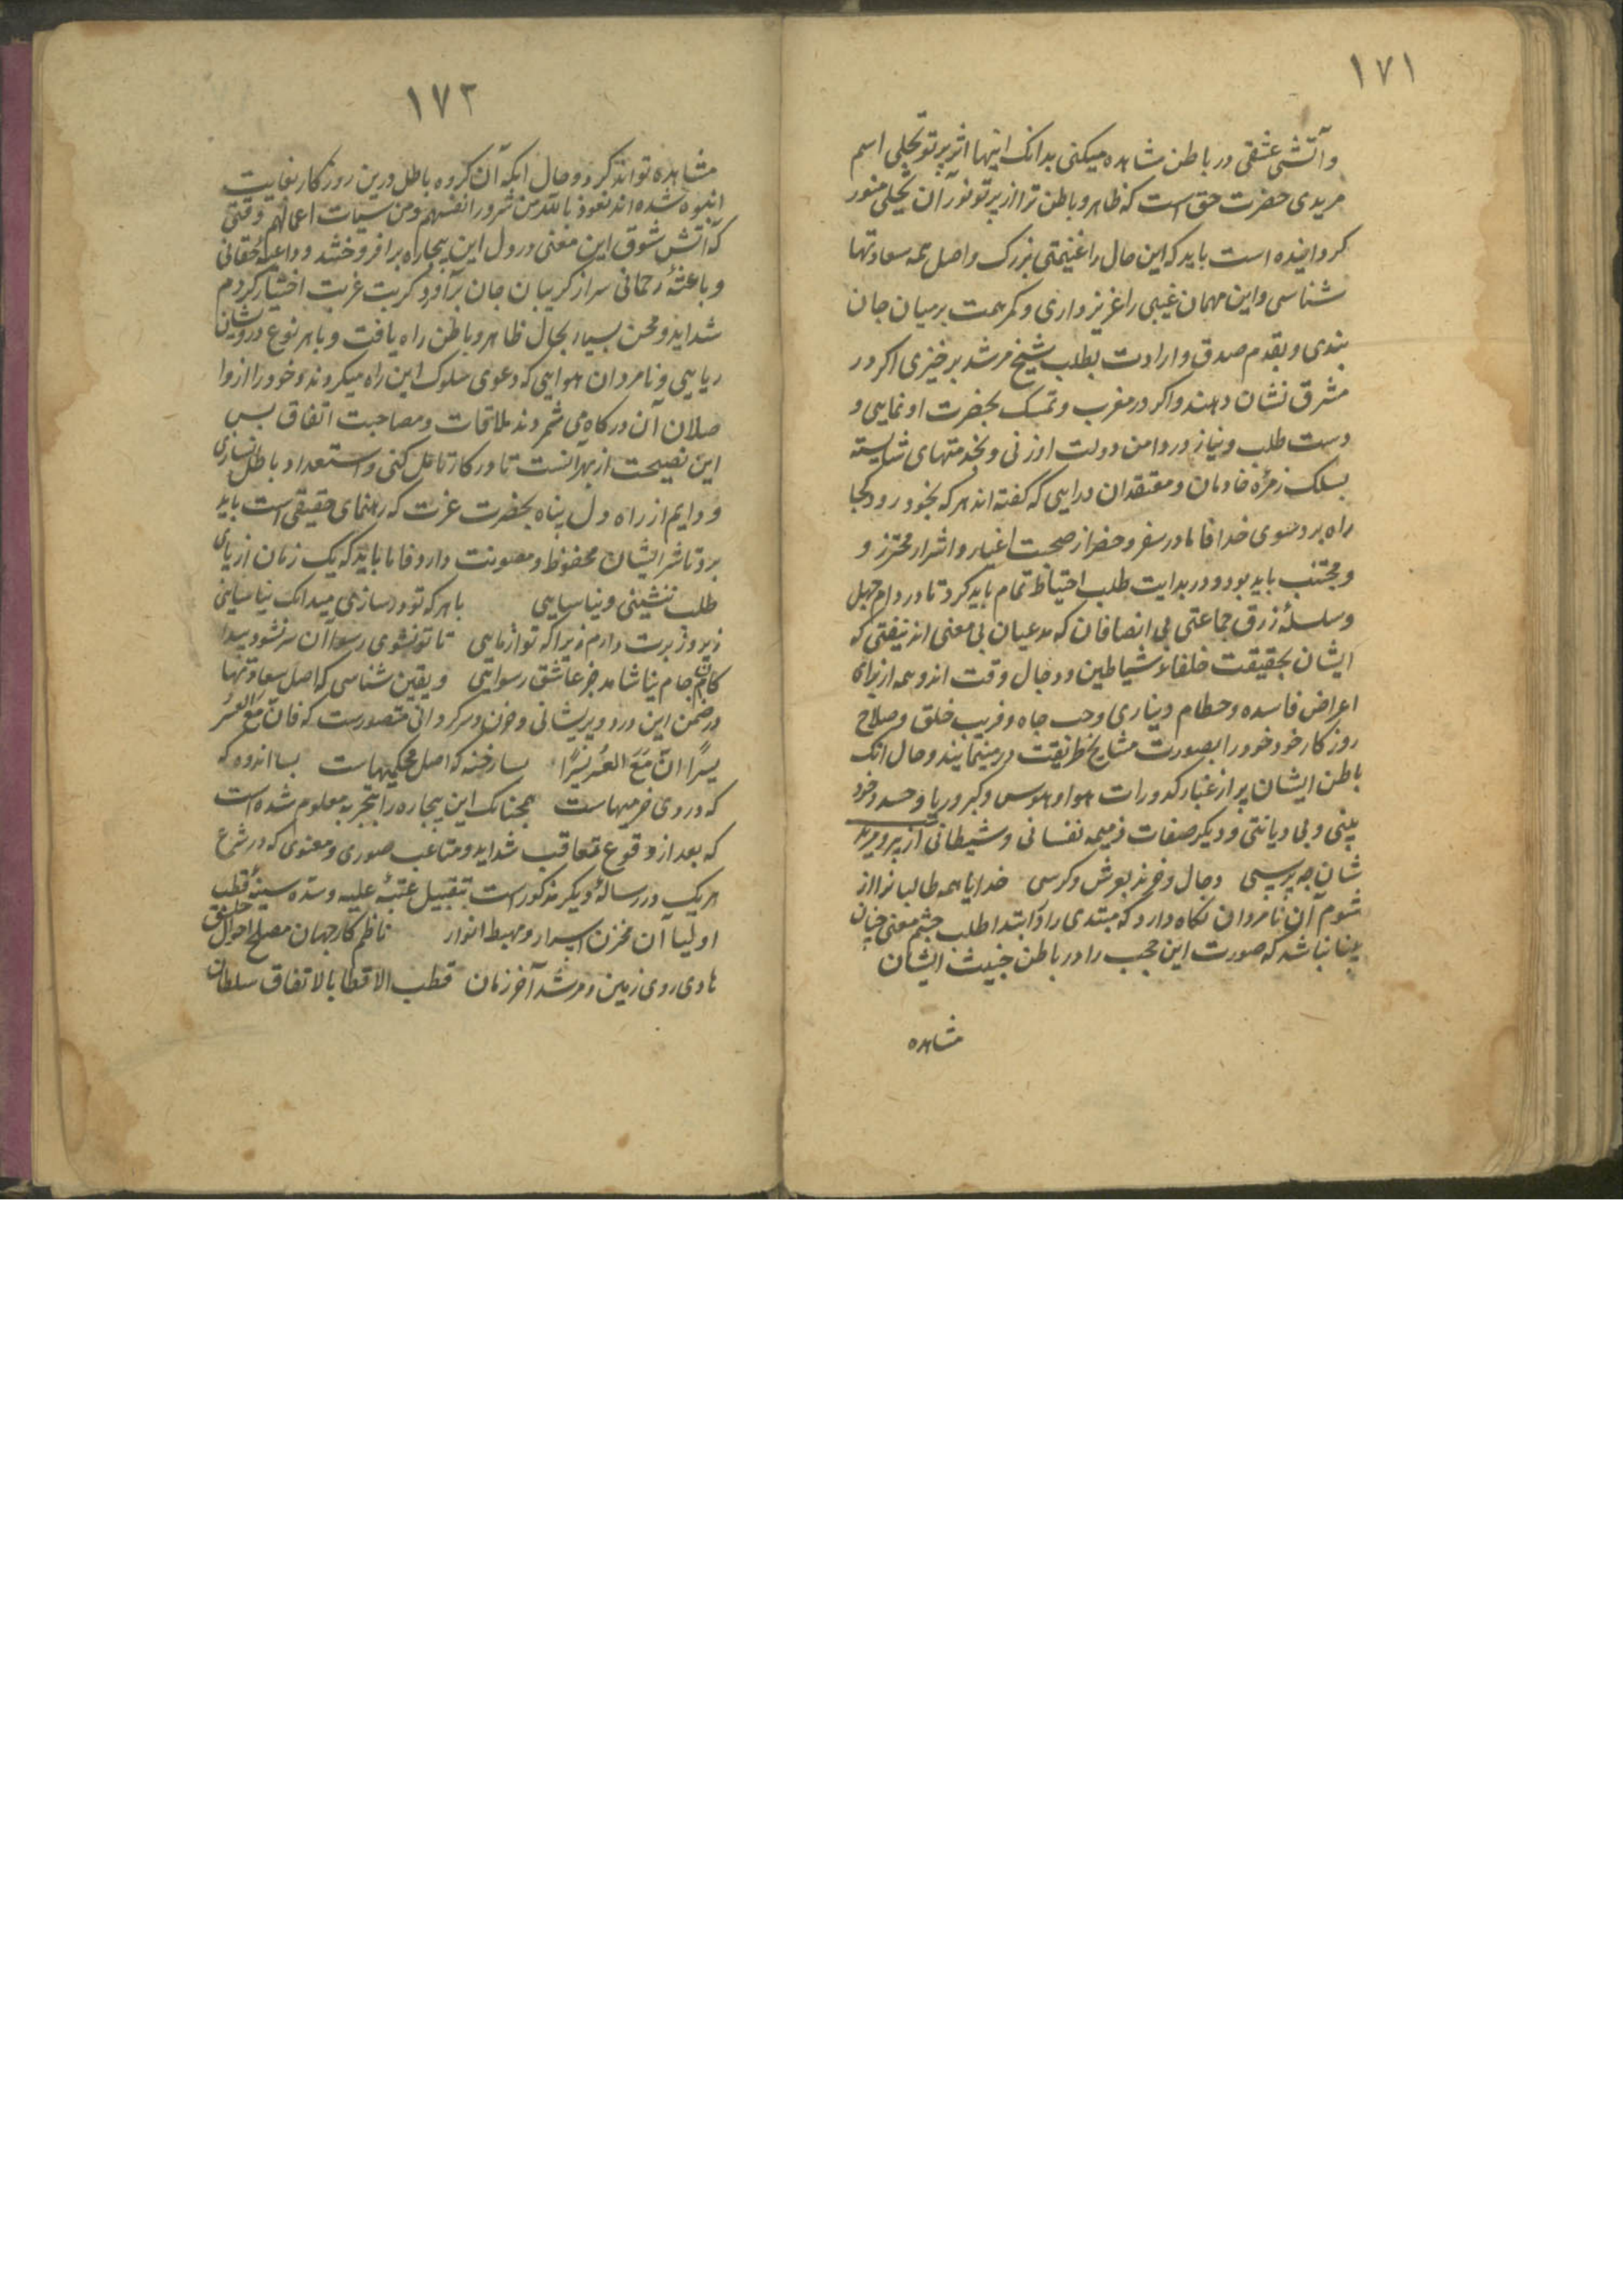 ۱۷۱
و آتش عشقی در باطن مشاهده میکنی بدانک اینها اثر پرتو تجلی اسم
مریدی حضرت حق است که ظاهر و باطن ترا از پرتو نور آن تجلی منور
کردانیده است باید که این حال را غنیمتی بزرک و اصل همه سعادتها
شناسی و این مهمان غیبی را عزیز داری و کمر همت بر میان جان
بندی و بقدم صدق و ارادت بطلب شیخ مرشد برخیزی اکر در
مشرق نشان دهند و اکر در مغرب و تمسک بحضرت او نمایی و
دست طلب و نیاز در دامن دولت او زنی و بخدمتهای شایسته
بسلک زمرهٔ خادمان و معتقدان درایی که کفته اند هر که بخود رود کجا
راه برد سوی خدا فاما در سفر و حضر از صحبت اغیار و اشرار محترز و
و مجتنب باید بود و در بدایت طلب احتیاط تمام باید کرد تا در دام جهل
و سلسلهٔ زرق جماعتی بی انصافان که مدعیان بی معنی اند نیفتی که
ایشان بحقیقت خلفاء شیاطین و دجال وقت اند و همه از برای
اعراض فاسده و حطام دنیاوی و حب جاه و فریب خلق و صلاح
روزکار خود خود را بصورت مشایخ طریقت درمینمایند و حال انک
باطن ایشان پر از غبار کدورات هوا و هوس و کبر و ریا و حسد و خود
بینی و بی دیانتی و دیکر صفات ذمیمه نفسانی و شیطانی از پیر و مرید
شان چه پرسی دجال و خرند بعرش و کرسی خدایا همه طالبانرا از
شوم آن نامردان نکاه دارد که مبتدی را در ابتداء طلب چشم معنی چنان
بینا نباشد که صورت این عجب را در باطن خبیث ایشان
مشاهده
۱۷۲
مشاهده تواند کرد و حال انکه آن کروه باطل درین روزکار بغایت
انبوه شده اند نعوذ بالله من شرور انفسهم و من سیئات اعمالهم وقتی
که آتش شوق این معنی در دل این بیچاره برافروختند و داعیهٔ حقانی
و باعثهٔ رحمانی سر از کریبان جان برآورد کربت غربت اختیار کردم
شداید و محن بسیار بحال ظاهر و باطن راه یافت و با هر نوع درویشان
ریایی و نامردان هوایی که دعوی سلوک این راه میکردند و خود را از
واصلان آن درکاه می شمردند ملاقات و مصاحبت اتفاق
این نصیحت از بهر انست تا در کار تامل کنی و استعداد باطل نسازی
و دایم از راه دل پناه بحضرت عزت که رهنمای حقیقی است باید
برد تا شر ایشان محفوظ و مصونت دارد فاما باید که یک زمان از پای
طلب ننشینی و نیاسایی با هر که تو درسازی میدانک نیاسایی
زیر و زبرت دارم زیرا که تو از مایی تا تو نشوی رسوا آن سر نشود پیدا
کان جام نیاشامد جز عاشق رسوایی و یقین شناسی که اصل سعادتها
در ضمن این درد و پریشانی و حزن و سرکردانی متصورست که فان مع العسر
یسرا ان مع العسر یسرا بسا رخنه که اصل محکمیهاست بسا اندوه که
که در وی خرمیهاست همچنانک این بیچاره را بتجربه معلوم شده است
که بعد از وقوع تعاقب شداید و متاعب صوری و معنوی که در شرح
هر یک در رسالهٔ دیکر مذکور است بتقبیل عتبهٔ علیه و سدهٔ سنیهٔ قطب
اولیا آن مخزن اسرار و مهبط انوار ناظم کار جهان مصلح احوال خلق
هادی روی زمین و مرشد آخر زمان قطب الاقطاب بالاتفاق سلطان